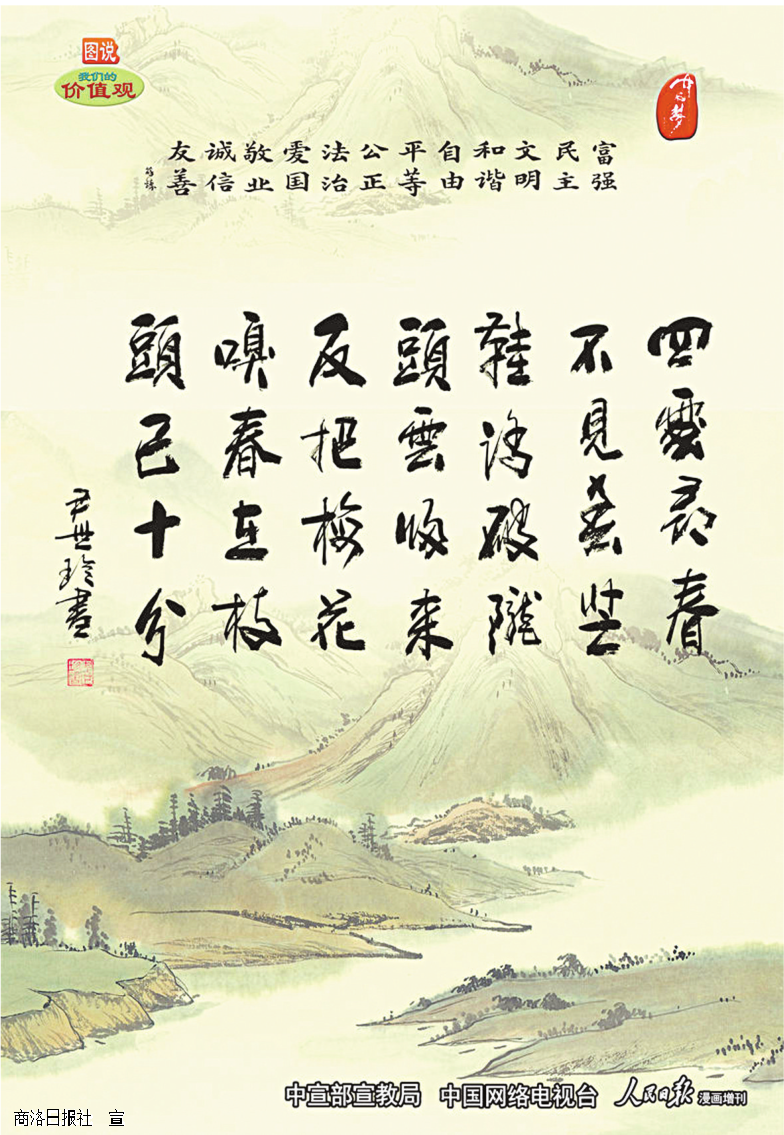 图说
我们的
价值观
中国梦
富强
民主
文明
和谐
自由
平等
公正
法治
爱国
敬业
诚信
友善
四處尋春
不見春芒
鞋踏破隴
頭雲歸来
反把梅花
嗅春在枝
頭已十分
尹世玲書
中宣部宣教局 中国网络电视台 人民日报 漫画增刊
商洛日报社 宣